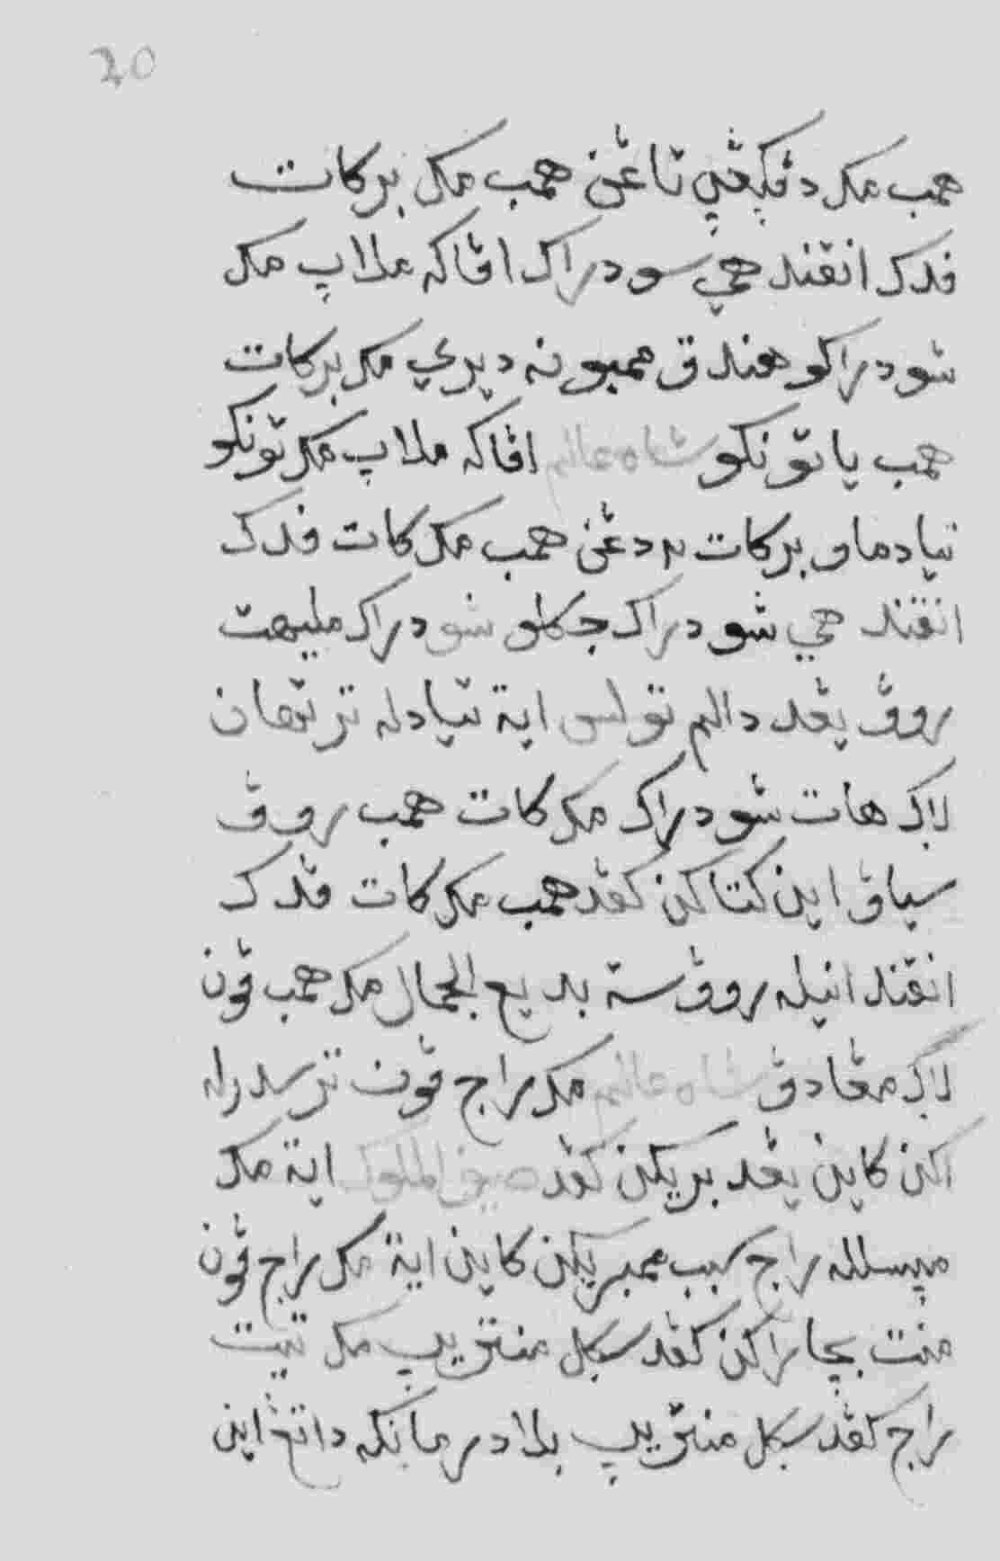 20
همب مک دڤڬڠڽ تاڠن همب مک برکات
فدک انقند همي سودراک اڤاکه علاڽ مک
شودراکو هندق ممبونه ديري مک برکات
همب ياتونکو شاه عالم اڤاکه ملاڽ مک تونکو
تيادماو برکات ۲ دڠن همب مک کات فدک
انقند همي شودراک جکلو شودراک مليهت
روڤ يڠد دالم تولس اية تيادله ترتهان
لاڬ هات شودراک مک کات همب روڤ
سياڤ اين کتاکن کڤد همب مک کات ڤدک
انقند انيله روڤ ستة بديع الجمال مک همب ڤون
لاڬ معادڤ شاه عالم مک راج ڤون ترسدرله
اکن کاين يڠد بريکن کڤد صيف الملوک اية مک
مڽسلله راج سبب ممبريکن کاين اية مک راج ڤون
منت بچاراکن کڤد سکل منتريڽ مک تيت
راج کڤد سکل منتريڽ بدادر مانکه داتڠ اين